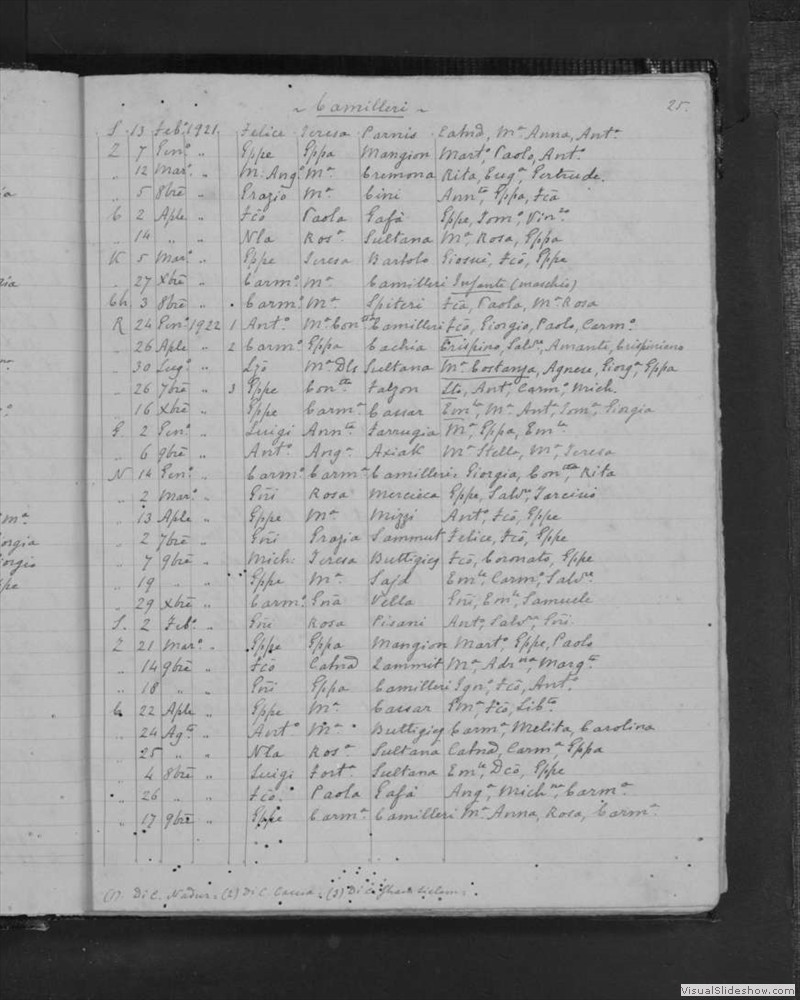 ~ Camilleri ~ 25.
S 13 Feb.º 1921 Felice Teresa Parnis Catnd, Mª Anna, Antª
Z 7 Genº „ Gppe Gppa Mangion Martº, Paolo, Antº
„ 12 Marº „ M. Angº Mª Cremona Rita, Eugª, Gertrude.
„ 5 8bre „ Grazio Mª Cini Annta, Gppa, Fca
C 2 Aple „ Fco Paola Gafà Gppe, Tomº, Vinzo
„ 14 „ „ Nla Rosª Sultana Mª, Rosa, Gppa
K 5 Marº „ Gppe Teresa Bartolo Giosuè, Fco, Gppe
„ 27 Xbre „ Carmº Mª Camilleri Infante (maschio)
Ch 3 8bre „ Carmº Mª Spiteri Fca, Paola, Mª Rosa
R 24 Genº 1922 1 Antº Mª Contta Camilleri Fco, Giorgio, Paolo, Carmº
„ 26 Aple „ 2 Carmº Gppa Cachia Crispino, Salvª, Amante, Crispiniano
„ 30 Lugº „ Ljo Mª Dls Sultana Mª Costanza, Agnese, Giorgª, Gppa
„ 26 7bre „ 3 Gppe Contta Falzon Antº, Carmº, Mich.
„ 16 Xbre „ Gppe Carmª Cassar Emla, Mª Antª, Tomª, Giorgia
G 2 Genº „ Luigi Annta Farrugia Mª, Gppa, Emla
„ 6 9bre „ Antº Angª Axiak Mª Stella, Mª, Teresa
N 14 Genº „ Carmº Carmª Camilleri Giorgia, Contta, Rita
„ 2 Marº „ Gni Rosa Mercieca Gppe, Salvre, Tarcisio
„ 13 Aple „ Gppe Mª Mizzi Antº, Fco, Gppe
„ 2 7bre „ Gni Grazia Sammut Felice, Fco, Gppe
„ 7 9bre „ Mich. Teresa Buttigieg Fco, Coronato, Gppe
„ 19 „ „ Gppe Mª Said Emle, Carmº, Salvre
„ 29 Xbre „ Carmº Gna Vella Gni, Emle, Samuele
S. 2 Febº „ Gni Rosa Pisani Antº, Salvre, Gni
Z 21 Marº „ Gppe Gppa Mangion Martº, Gppe, Paolo
„ 14 9bre „ Fco Catnd Zammit Mª, Adrna, Margta
„ 18 „ „ Gni Gppa Camilleri Ignº, Fco, Antº
C 22 Aple „ Gppe Mª Cassar Fco, Libta
„ 24 Agto „ Antº Mª Buttigieg Carmª, Melita, Carolina
„ 25 „ „ Nla Rosª Sultana Catnd, Carmª, Gppa
„ 4 8bre „ Luigi Fortª Sultana Emle, Dco, Gppe
„ 26 „ „ Fco Paola Gafà Angª, Michna, Carmª
„ 17 9bre „ Gppe Carmª Camilleri Mª Anna, Rosa, Carmª
(1) Di C. Nadur. (2) Di C. Caccia. (3) Di C.
VisualSlideshow.com